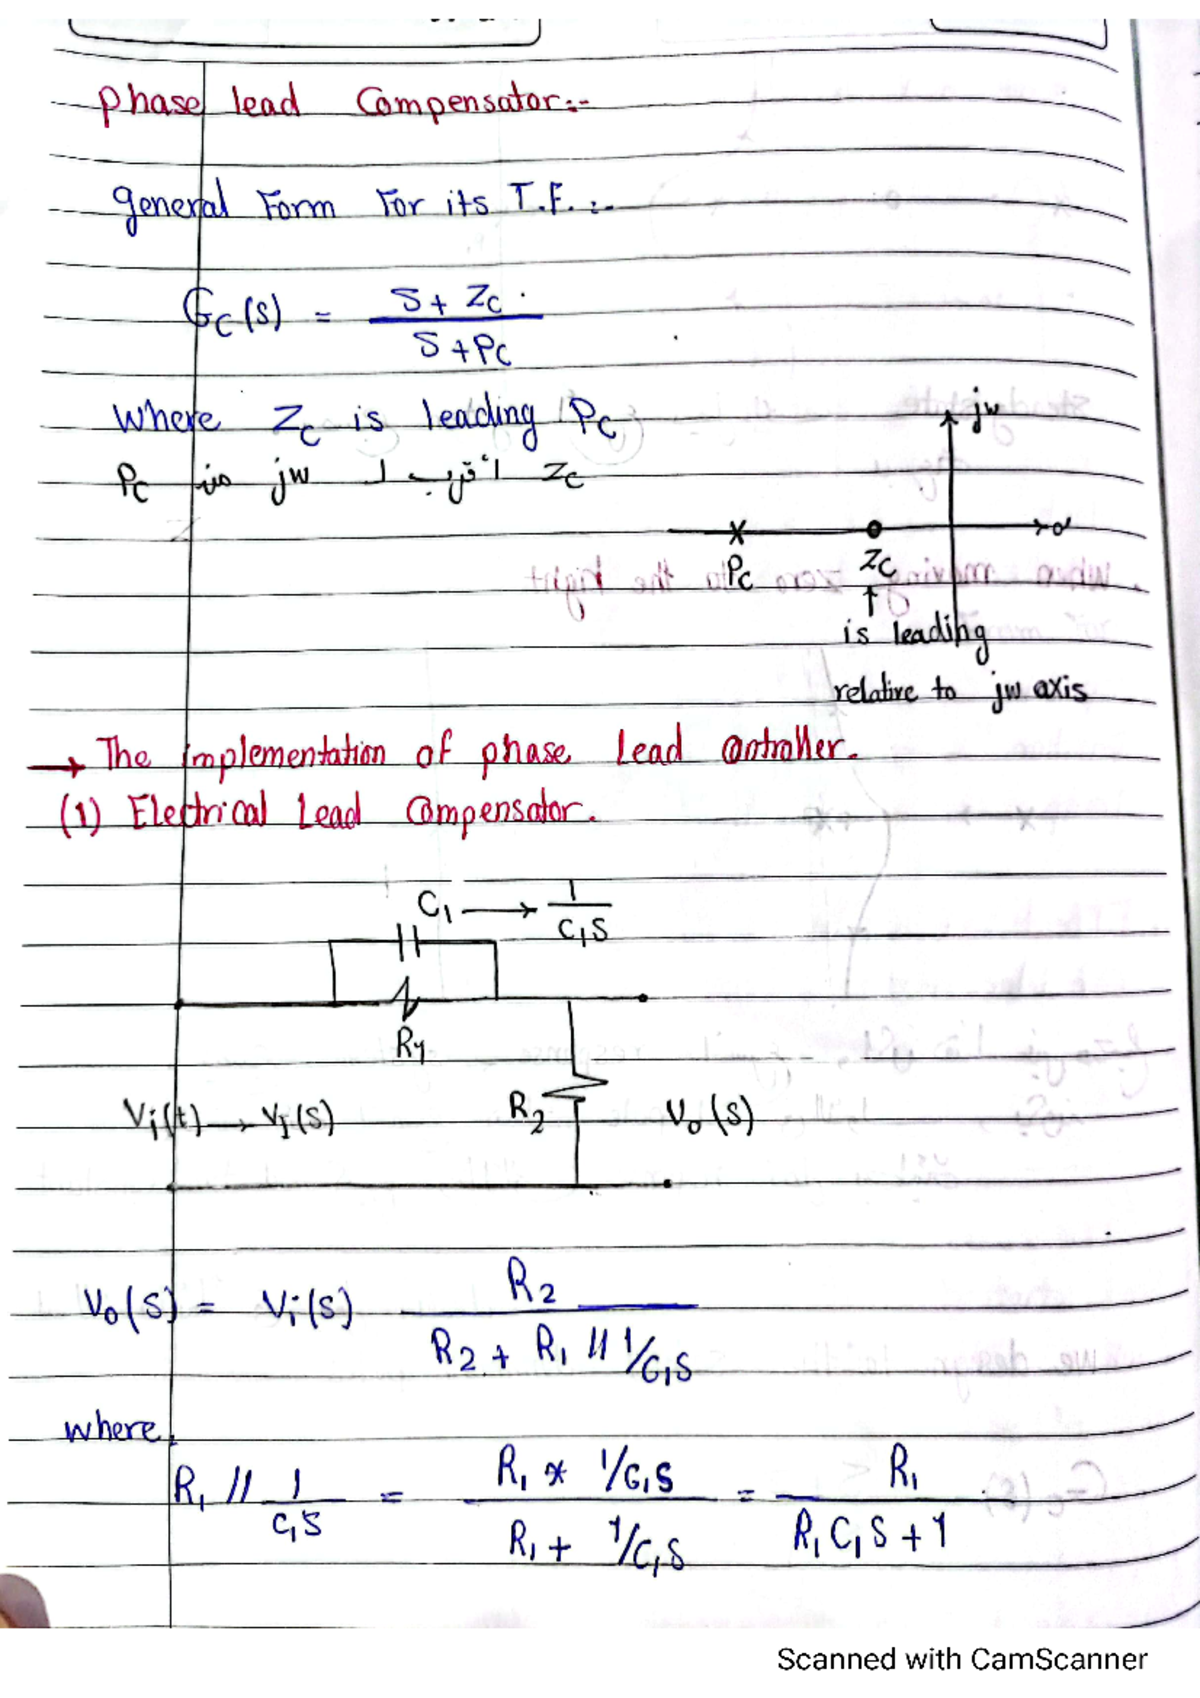 Phase lead Compensator:-
general Form For its T.F. :-
Gc(s) = S + Zc / S + Pc
where Zc is leading Pc
Zc أقرب لـ jw من Pc
jw
σ
Pc Zc
↑
is leading
relative to jw axis
→ The implementation of phase Lead Controller.
(1) Electrical Lead Compensator.
C1 → 1 / C1S
R1
Vi(t) → VI(S) R2 Vo(S)
Vo(S) = Vi(S) R2 / R2 + R1 // 1/C1S
where,
R1 // 1 / C1S = R1 * 1/C1S / R1 + 1/C1S = R1 / R1 C1 S + 1
Scanned with CamScanner